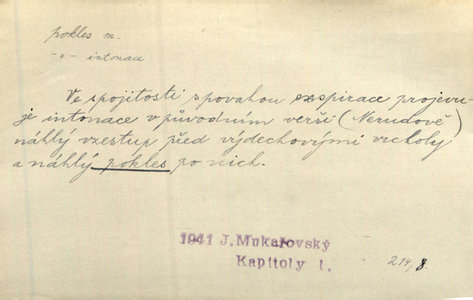 pokles m.
-"- intonace
Ve spojitosti s povahou exspirace projevu-
je intonace v původním verši (Nerudově)
náhlý vzestup před výdechovými vrcholy
a náhlý pokles po nich.
1941 J. Mukařovský
Kapitoly I.
214, 8